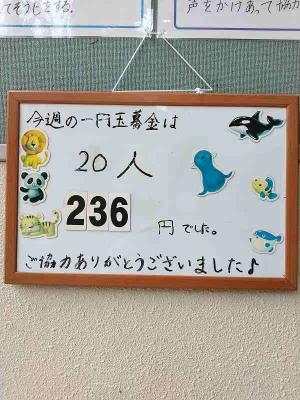 てそうじをする。
声をかけあって協力
今週の一円玉募金は
20人
236
円でした。
ご協力ありがとうございました♪